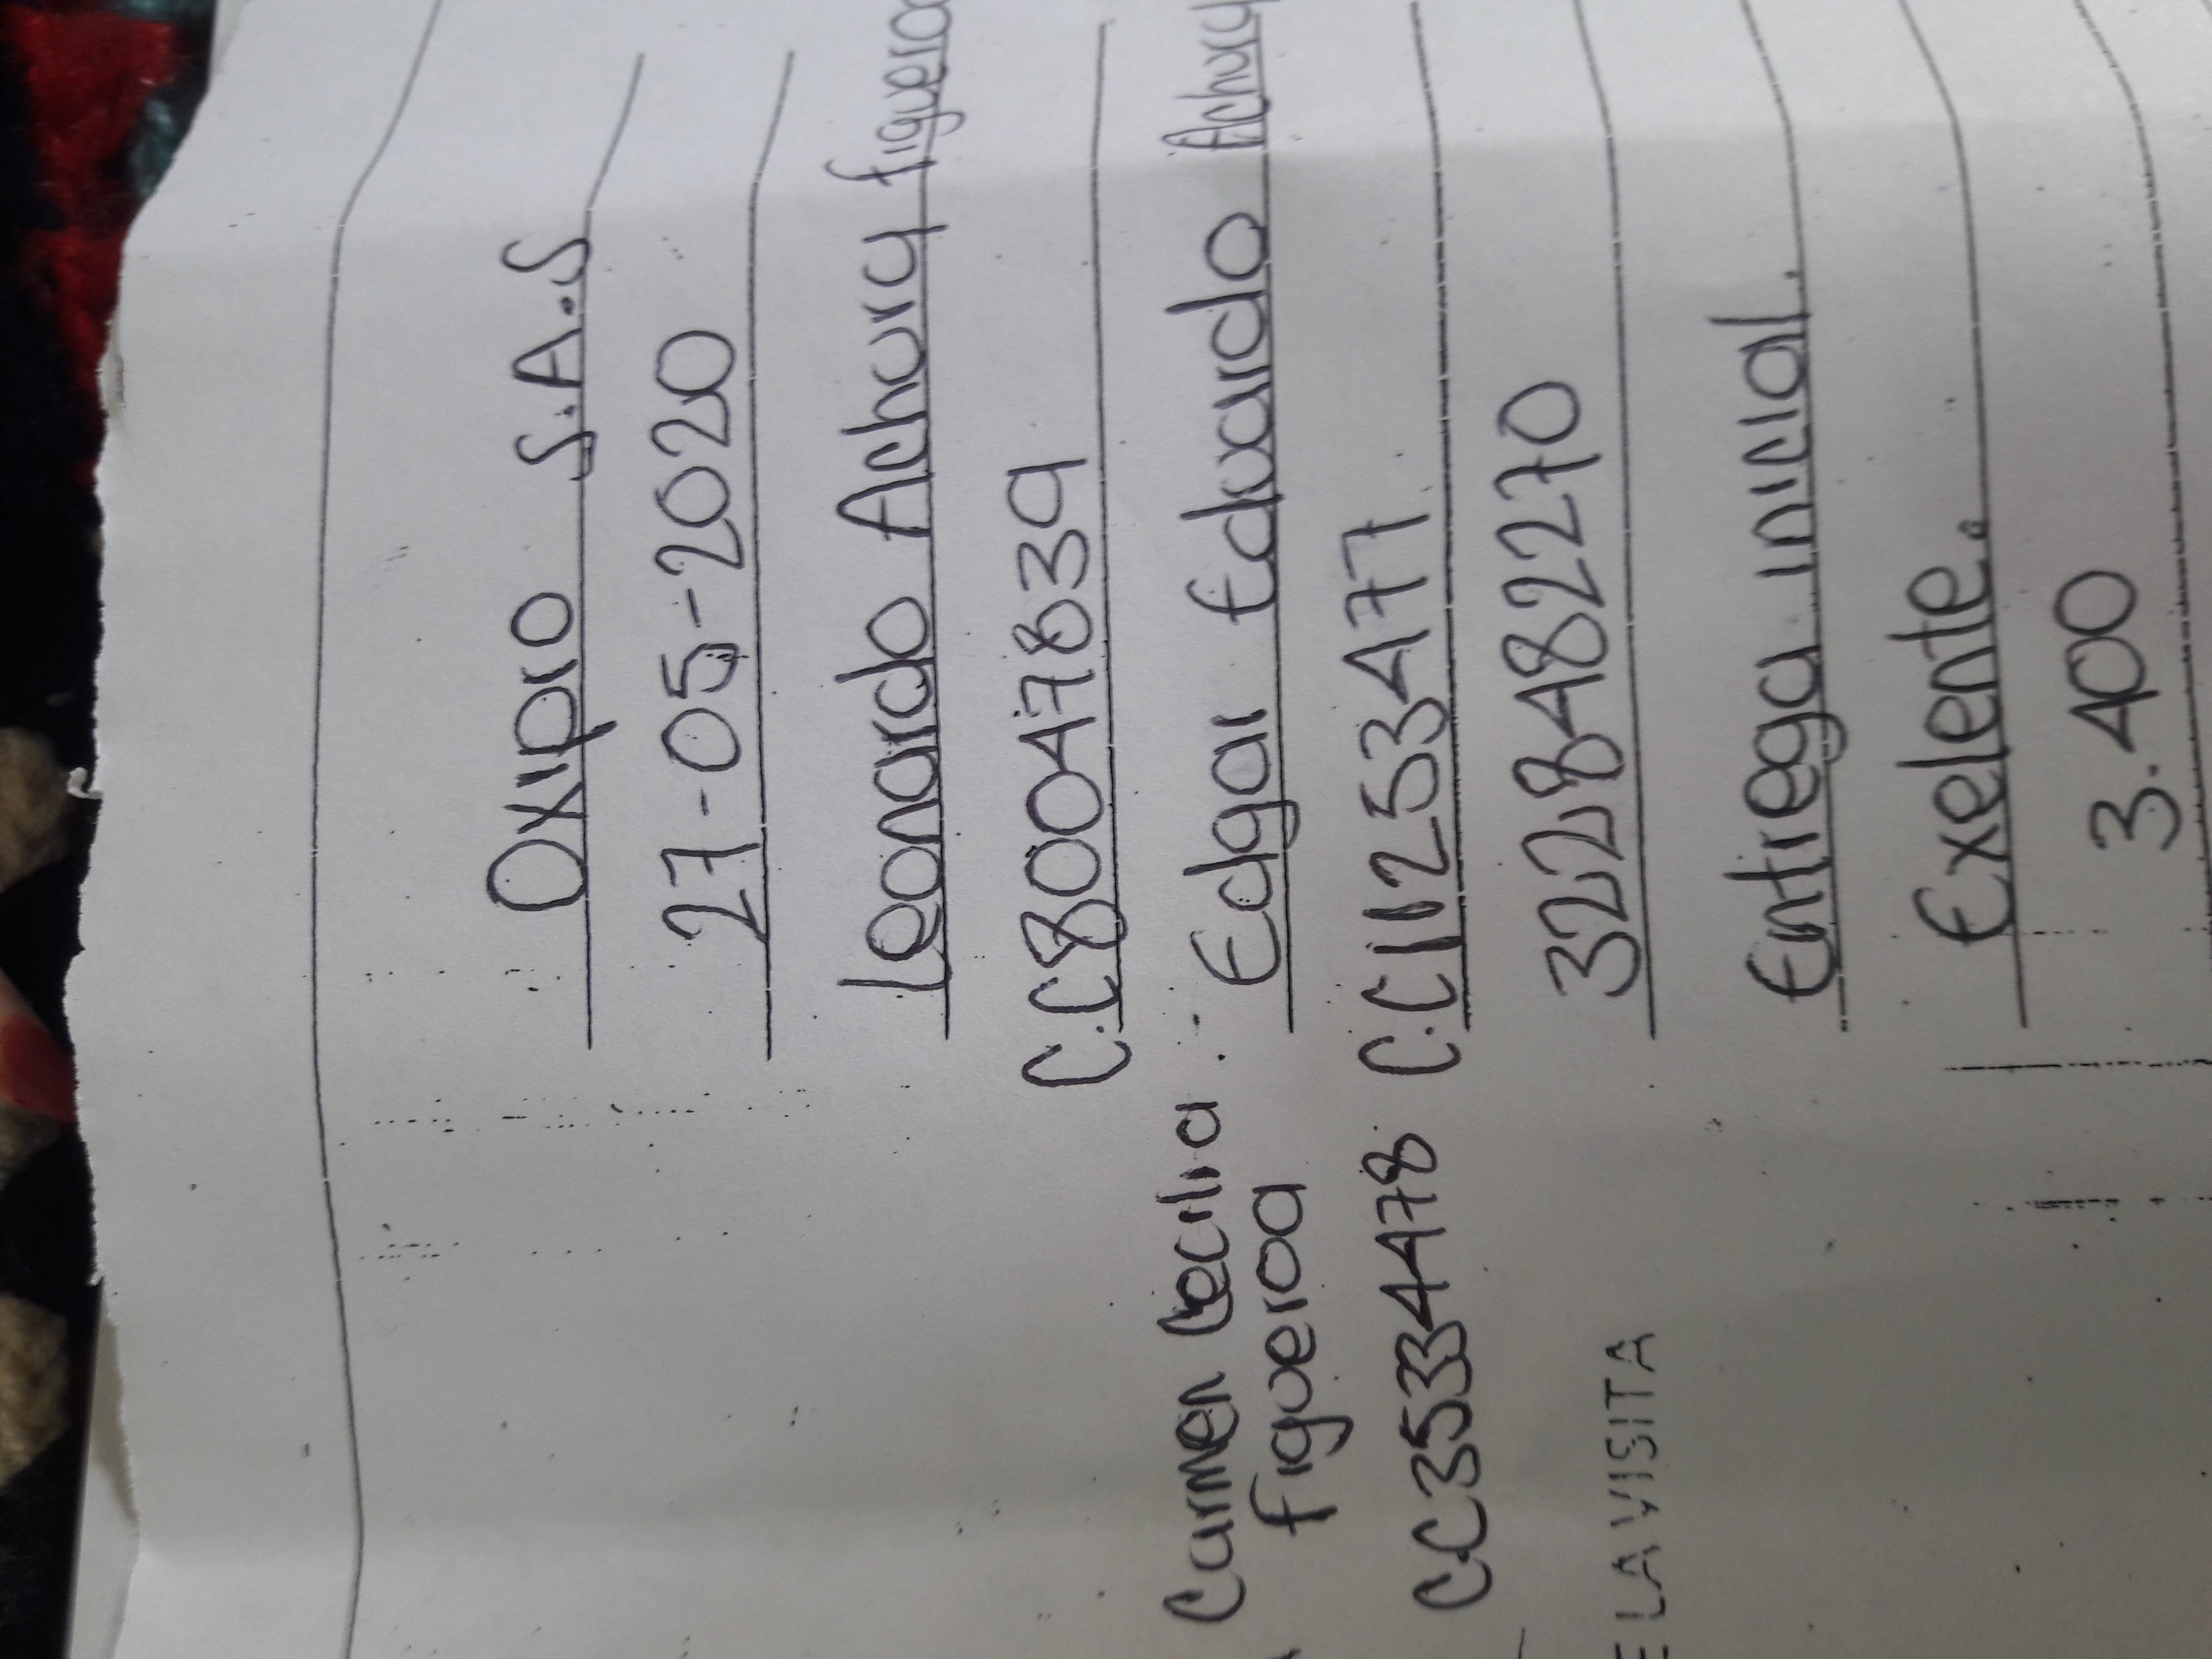 Oxipro S.A.S
27-05-2020
Leonardo Achury figueroa
C.C80047839
Carmen Cecilia Edgar Eduardo Achury
figueroa
C.C3534478 C.C11253477
3228848270
E LA VISITA
Entrega inicial.
Exelente.
3.400